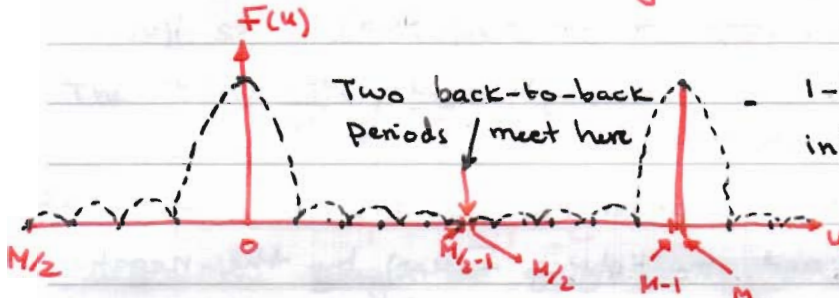 F(u)
Two back-to-back - 1-
periods meet here in
M/2 0 M/2-1 M/2 M-1 M u